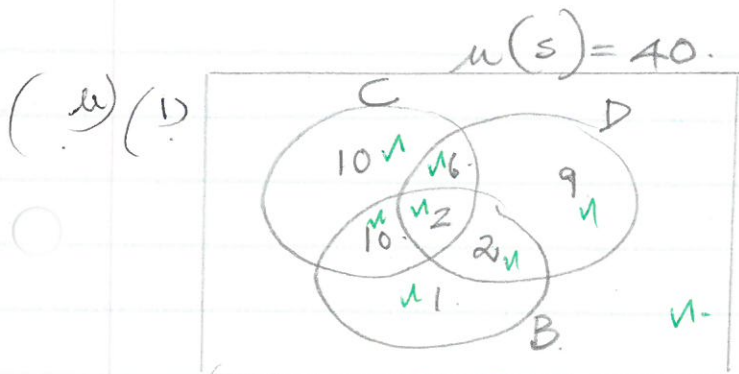 n(s) = 40.
(ii) (1)
C
D
10
6
9
10
2
2
1
B